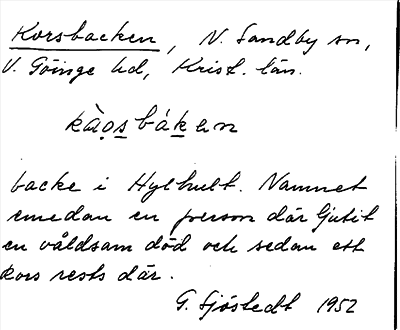 Korsbacken, N. Sandby sn,
V. Göinge hd, Krist. län.
kàǫs̲bák̲an
backe i Hylhult. Namnet
emedan en person där ljutit
en våldsam död och sedan ett
kors rests där.
G. Sjöstedt 1952